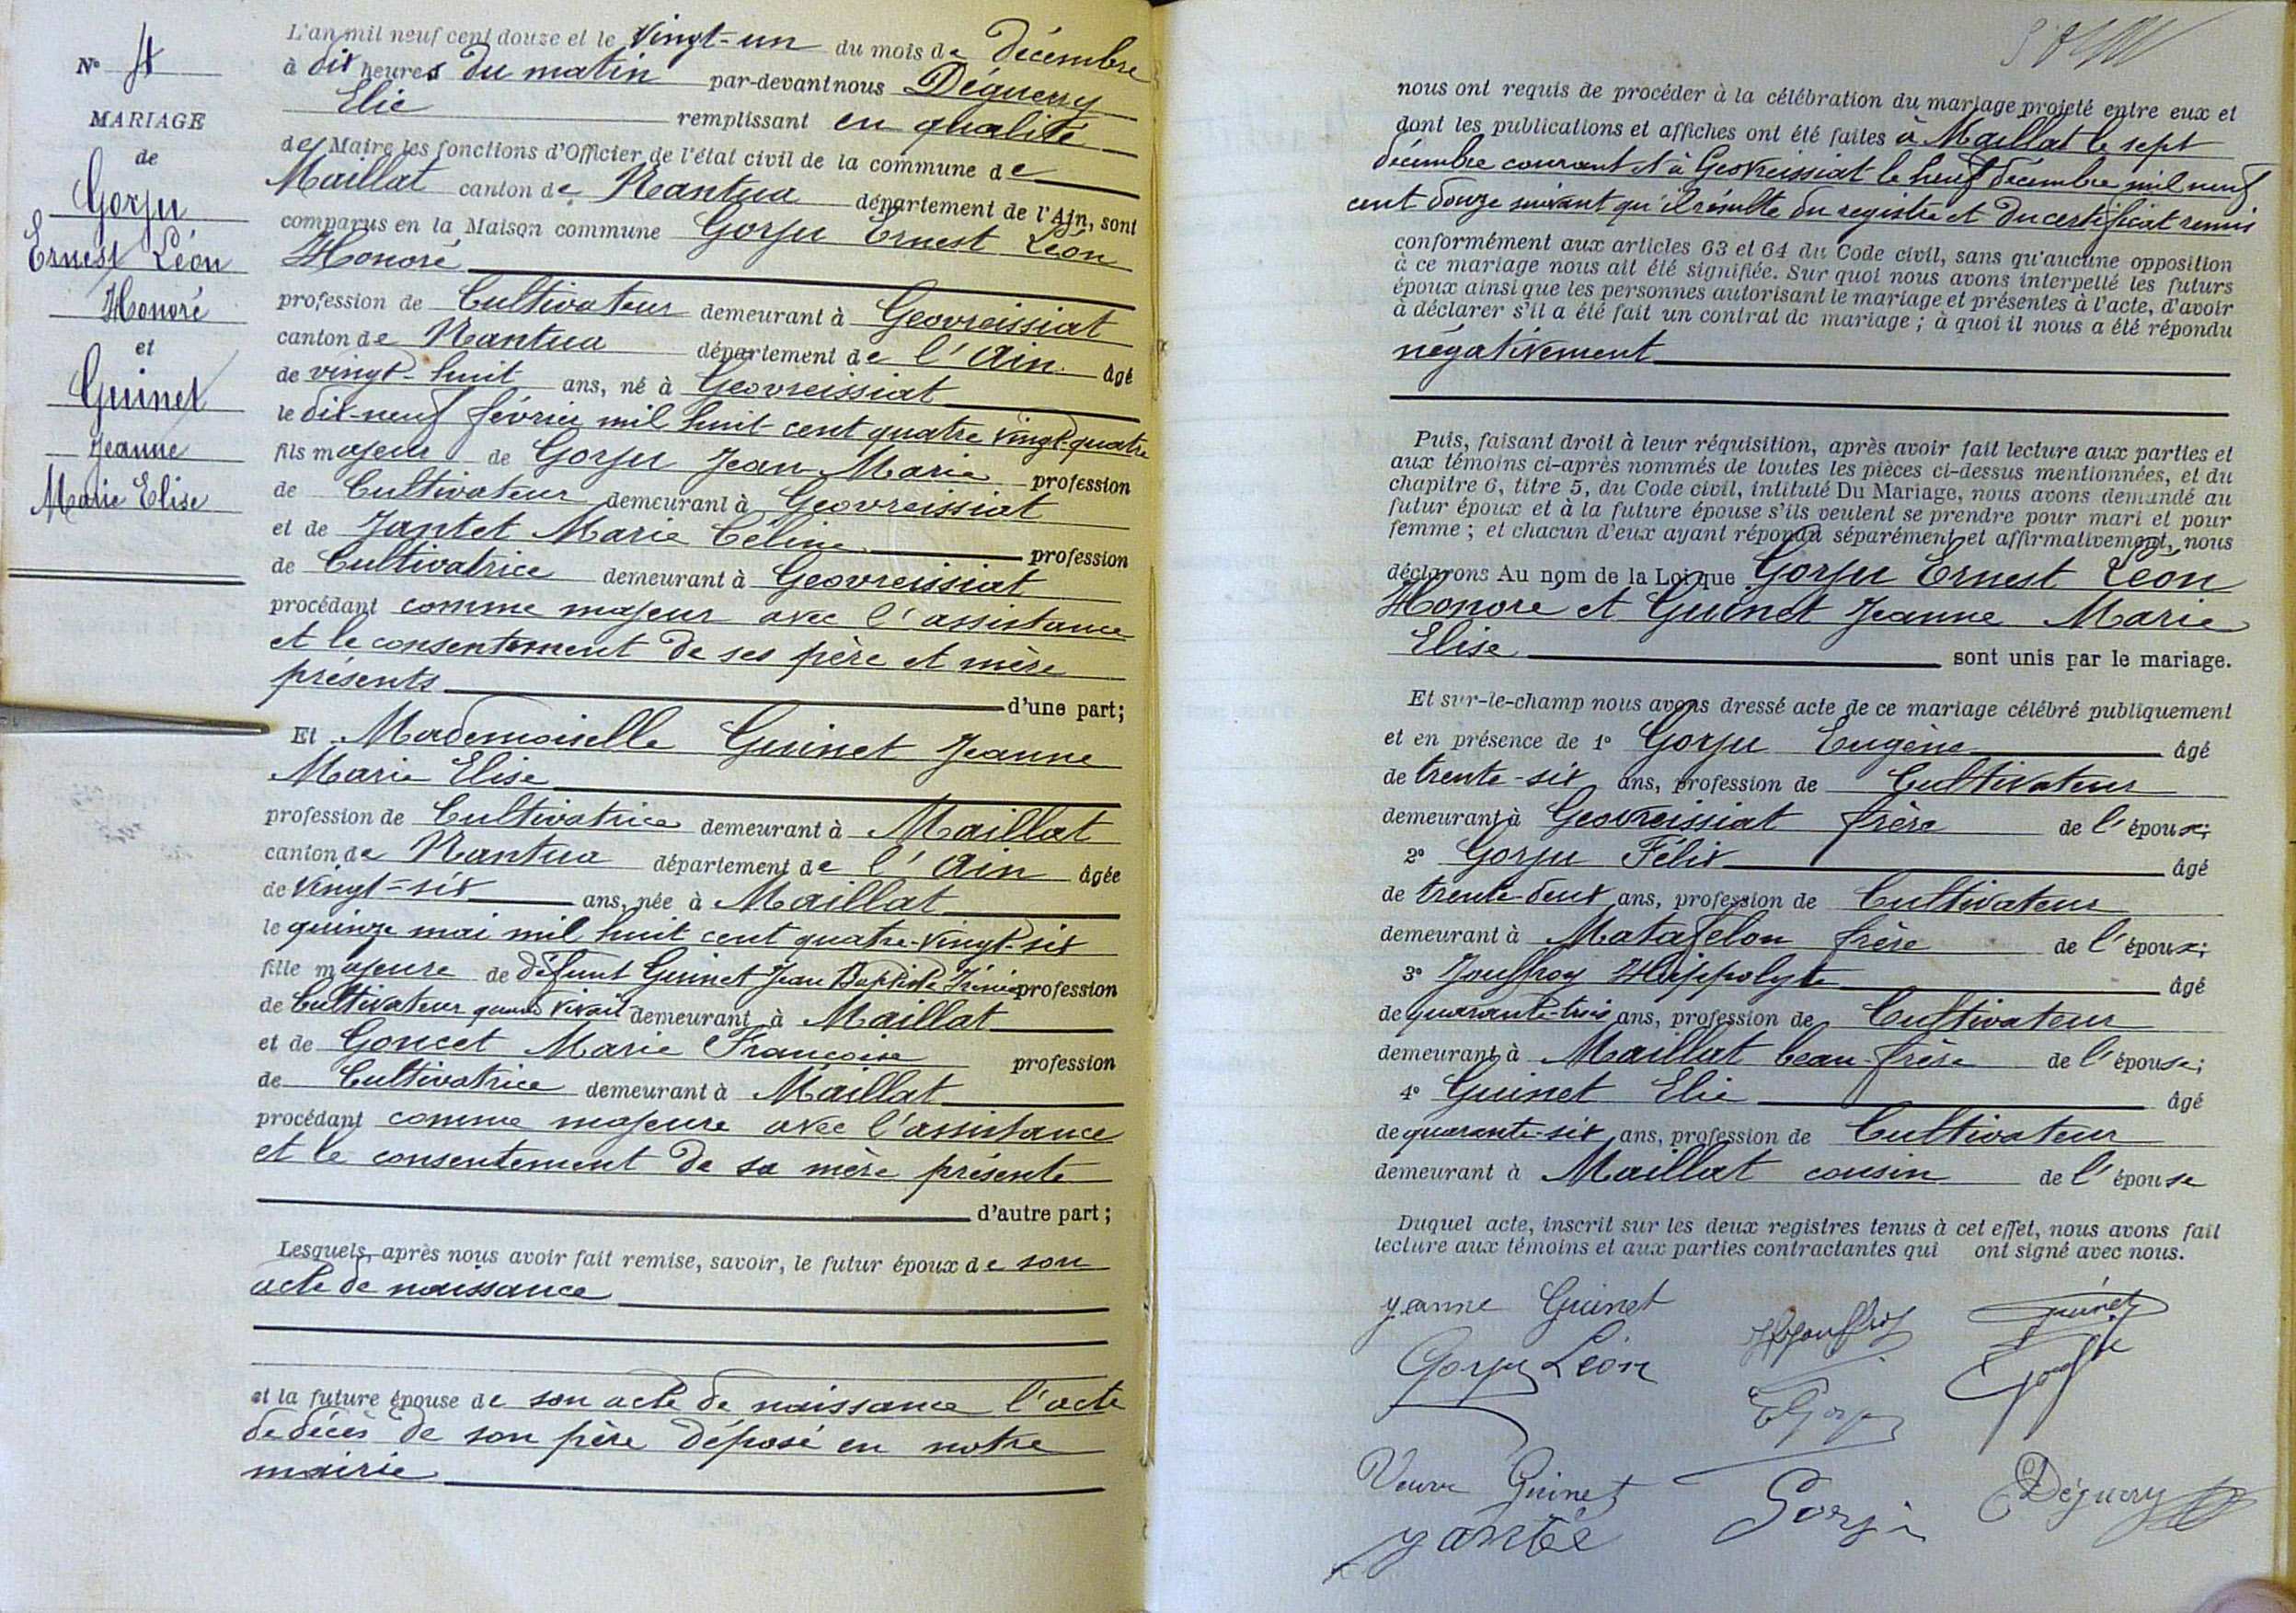 N° 4
MARIAGE
de
Gorju
Ernest Léon
Honoré
et
Guinet
Jeanne
Marie Elise
L'an mil neuf cent douze et le vingt-un du mois de décembre
à dix heures du matin par-devant nous Déguerry
Elie remplissant en qualité
de Maire les fonctions d'Officier de l'état civil de la commune de
Maillat canton de Nantua département de l'Ain, sont
comparus en la Maison commune Gorju Ernest Léon
Honoré
profession de Cultivateur demeurant à Geovreissiat
canton de Nantua département de l'Ain âgé
de vingt-huit ans, né à Geovreissiat
le dix-neuf février mil huit cent quatre vingt quatre
fils majeur de Gorju Jean Marie profession
de Cultivateur demeurant à Geovreissiat
et de Jantet Marie Céline profession
de Cultivatrice demeurant à Geovreissiat
procédant comme majeur avec l'assistance
et le consentement de ses père et mère
présents d'une part;
Et Mademoiselle Guinet Jeanne
Marie Elise
profession de Cultivatrice demeurant à Maillat
canton de Nantua département de l'Ain âgée
de vingt-six ans, née à Maillat
le quinze mai mil huit cent quatre-vingt-six
fille majeure de défunt Guinet Jean Baptiste Irénée profession
de Cultivateur quand vivait demeurant à Maillat
et de Goncet Marie Françoise profession
de Cultivatrice demeurant à Maillat
procédant comme majeure avec l'assistance
et le consentement de sa mère présente
d'autre part;
Lesquels, après nous avoir fait remise, savoir, le futur époux de son
acte de naissance
et la future épouse de son acte de naissance l'acte
de décès de son père déposé en notre
mairie
nous ont requis de procéder à la célébration du mariage projeté entre eux et
dont les publications et affiches ont été faites à Maillat le sept
décembre courant et à Geovreissiat le huit décembre mil neuf
cent douze suivant qu'il résulte du registre et du certificat remis
conformément aux articles 63 et 64 du Code civil, sans qu'aucune opposition
à ce mariage nous ait été signifiée. Sur quoi nous avons interpellé les futurs
époux ainsi que les personnes autorisant le mariage et présentes à l'acte, d'avoir
à déclarer s'il a été fait un contrat de mariage; à quoi il nous a été répondu
négativement
Puis, faisant droit à leur réquisition, après avoir fait lecture aux parties et
aux témoins ci-après nommés de toutes les pièces ci-dessus mentionnées, et du
chapitre 6, titre 5, du Code civil, intitulé Du Mariage, nous avons demandé au
futur époux et à la future épouse s'ils veulent se prendre pour mari et pour
femme; et chacun d'eux ayant répondu séparément et affirmativement, nous
déclarons Au nom de la Loi que Gorju Ernest Léon
Honoré et Guinet Jeanne Marie
Elise sont unis par le mariage.
Et sur-le-champ nous avons dressé acte de ce mariage célébré publiquement
et en présence de 1° Gorju Eugène âgé
de trente-six ans, profession de Cultivateur
demeurant à Geovreissiat frère de l'époux;
2° Gorju Félix âgé
de trente-deux ans, profession de Cultivateur
demeurant à Matafelon frère de l'époux;
3° Jouffroy Hippolyte âgé
de quarante-trois ans, profession de Cultivateur
demeurant à Maillat beau-frère de l'épouse;
4° Guinet Elie âgé
de quarante-six ans, profession de Cultivateur
demeurant à Maillat cousin de l'épouse
Duquel acte, inscrit sur les deux registres tenus à cet effet, nous avons fait
lecture aux témoins et aux parties contractantes qui ont signé avec nous.
Jeanne Guinet
Guinet
Gorju Léon
E Gorju
Veuve Guinet
Gorju
Déguerry